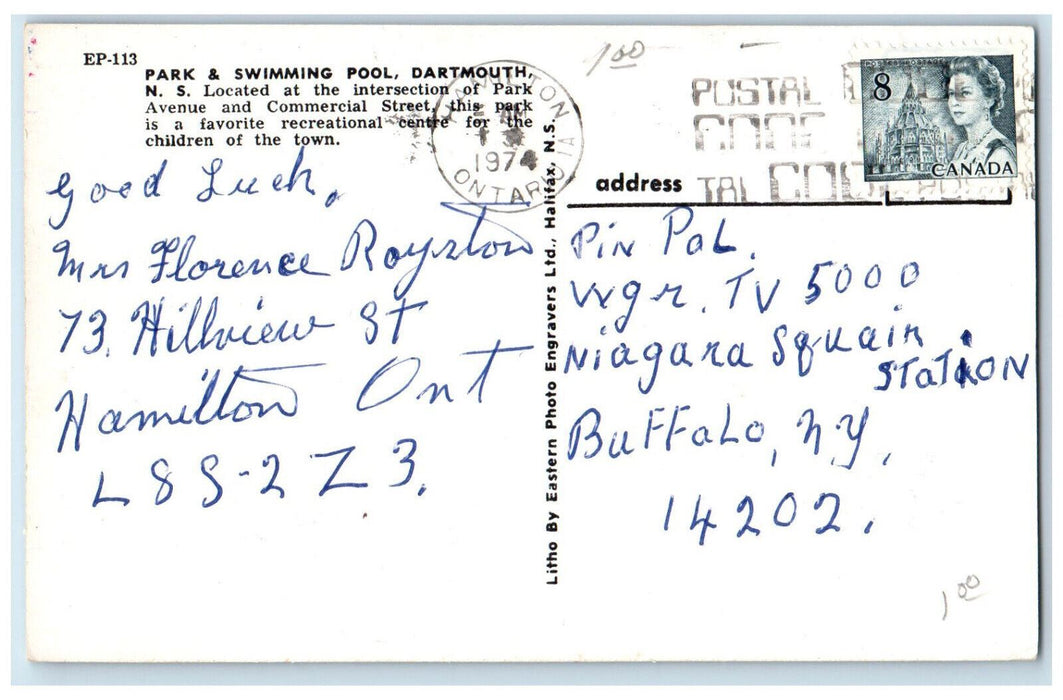 EP-113
PARK & SWIMMING POOL, DARTMOUTH,
N. S. Located at the intersection of Park
Avenue and Commercial Street, this park
is a favorite recreational centre for the
children of the town.
Good Luck.
Mrs Florence Royston
73. Hillview St
Hamilton Ont
L8S-2Z3.
Litho By Eastern Photo Engravers Ltd., Halifax, N.S.
1.00
HAMILTON
1974
ONTARIO
POSTAL
CODE
TAL CODE POS
8
CANADA
address
Pin Pal.
Wgr. TV 5000
Niagara Squair
STATION
Buffalo, N.Y.
14202.
1.00